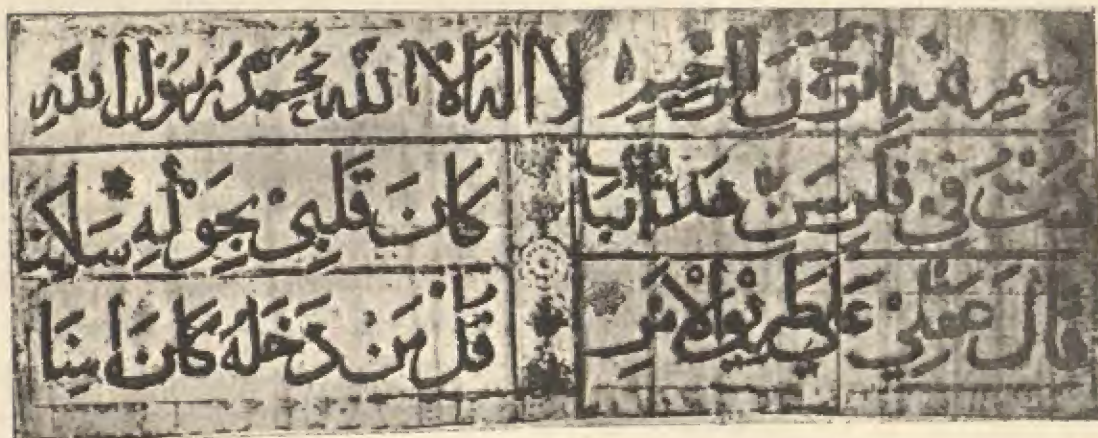 بسم الله الرحمن الرحيم لا اله الا الله محمد رسول الله
كنت في فكر من هذا الباب كان قلبي بحوله ساكنا
قال عقلي علي طريق الامر قل من دخله كان امنا